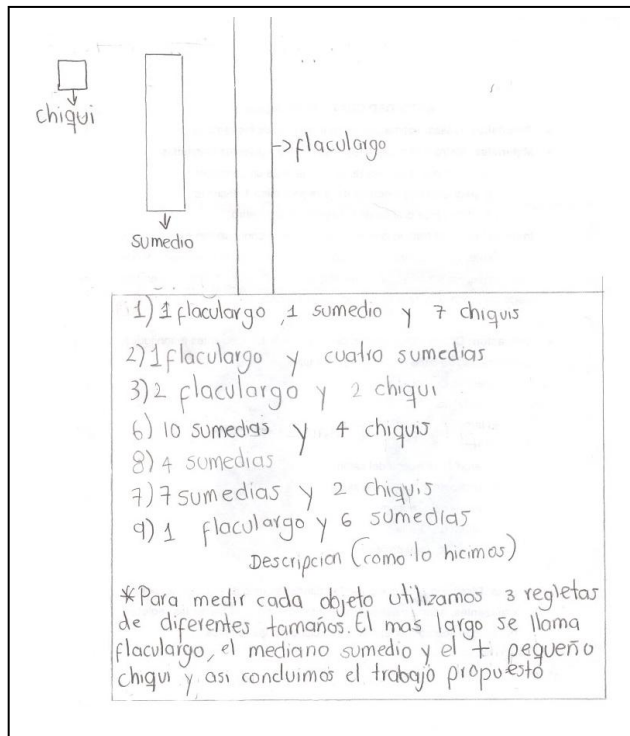 chiqui
sumedio
->flaculargo
1) 1 flaculargo, 1 sumedio y 7 chiquis
2) 1 flaculargo y cuatro sumedias
3) 2 flaculargo y 2 chiqui
6) 10 sumedias y 4 chiquis
8) 4 sumedias
7) 7 sumedias y 2 chiquis
9) 1 flaculargo y 6 sumedias
Descripcion (como lo hicimos)
*Para medir cada objeto utilizamos 3 regletas
de diferentes tamaños. El mas largo se llama
flaculargo, el mediano sumedio y el + pequeño
chiqui y asi concluimos el trabajo propuesto